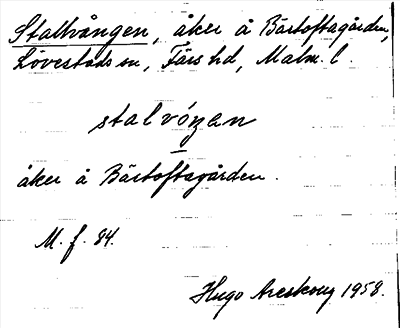 Stallvången, åker å Bärtoftagården,
Lövestads sn, Färs hd, Malm. l.
stalvóŋen
åker å Bärtoftagården.
M. f. 84.
Hugo Areskoug 1958.